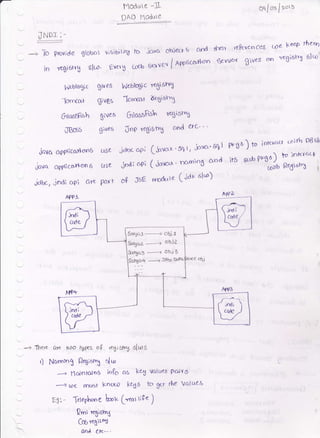 Module - II
DAO Module
04/09/2013
JNDI :-
→ To provide global visibility to java objects and their references we keep them
in registry s/w. Every web server / Application server gives on registry s/w
Weblogic gives Weblogic registry
Tomcat gives Tomcat Registry
GlassFish gives GlassFish registry
JBoss gives Jnp registry and etc...
Java applications use jdbc api (javax.sql, java.sql pkgs) to interact with DB s/w
java applications use jndi api (javax.naming and its sub pkgs) to interact
with Registry
jdbc, jndi api are part of JSE module (jdk s/w)
APP1
APP2
jndi
code
jndi
code
Suryas → obj1
→ obj2
→ obj3
APP4
APP3
jndi
code
jndi
code
→ There are two types of registry s/ws
1) Naming Registry s/w
→ Maintains info as key values pairs
→ we must know keys to get the values
Eg:- Telephone book (real life)
Rmi registry
Cos registry
and etc...